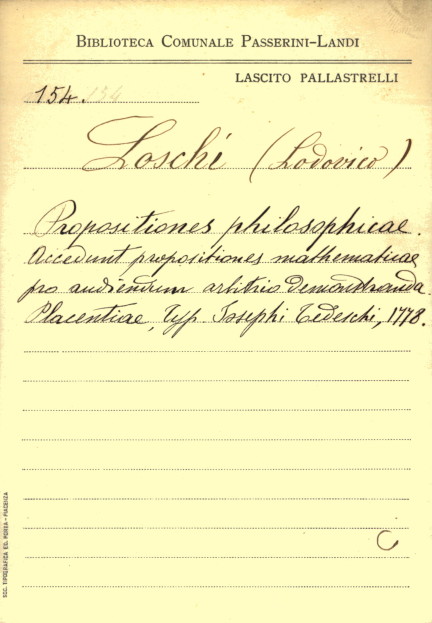 BIBLIOTECA COMUNALE PASSERINI-LANDI
LASCITO PALLASTRELLI
154. 154
Loschi (Lodovico)
Propositiones philosophicae.
Accedunt propositiones mathematicae
pro audiendum arbitrio demonstranda.
Placentiae, Typ. Josephi Tedeschi, 1778.
C
SOC. TIPOGRAFICA ED. PORTA - PIACENZA